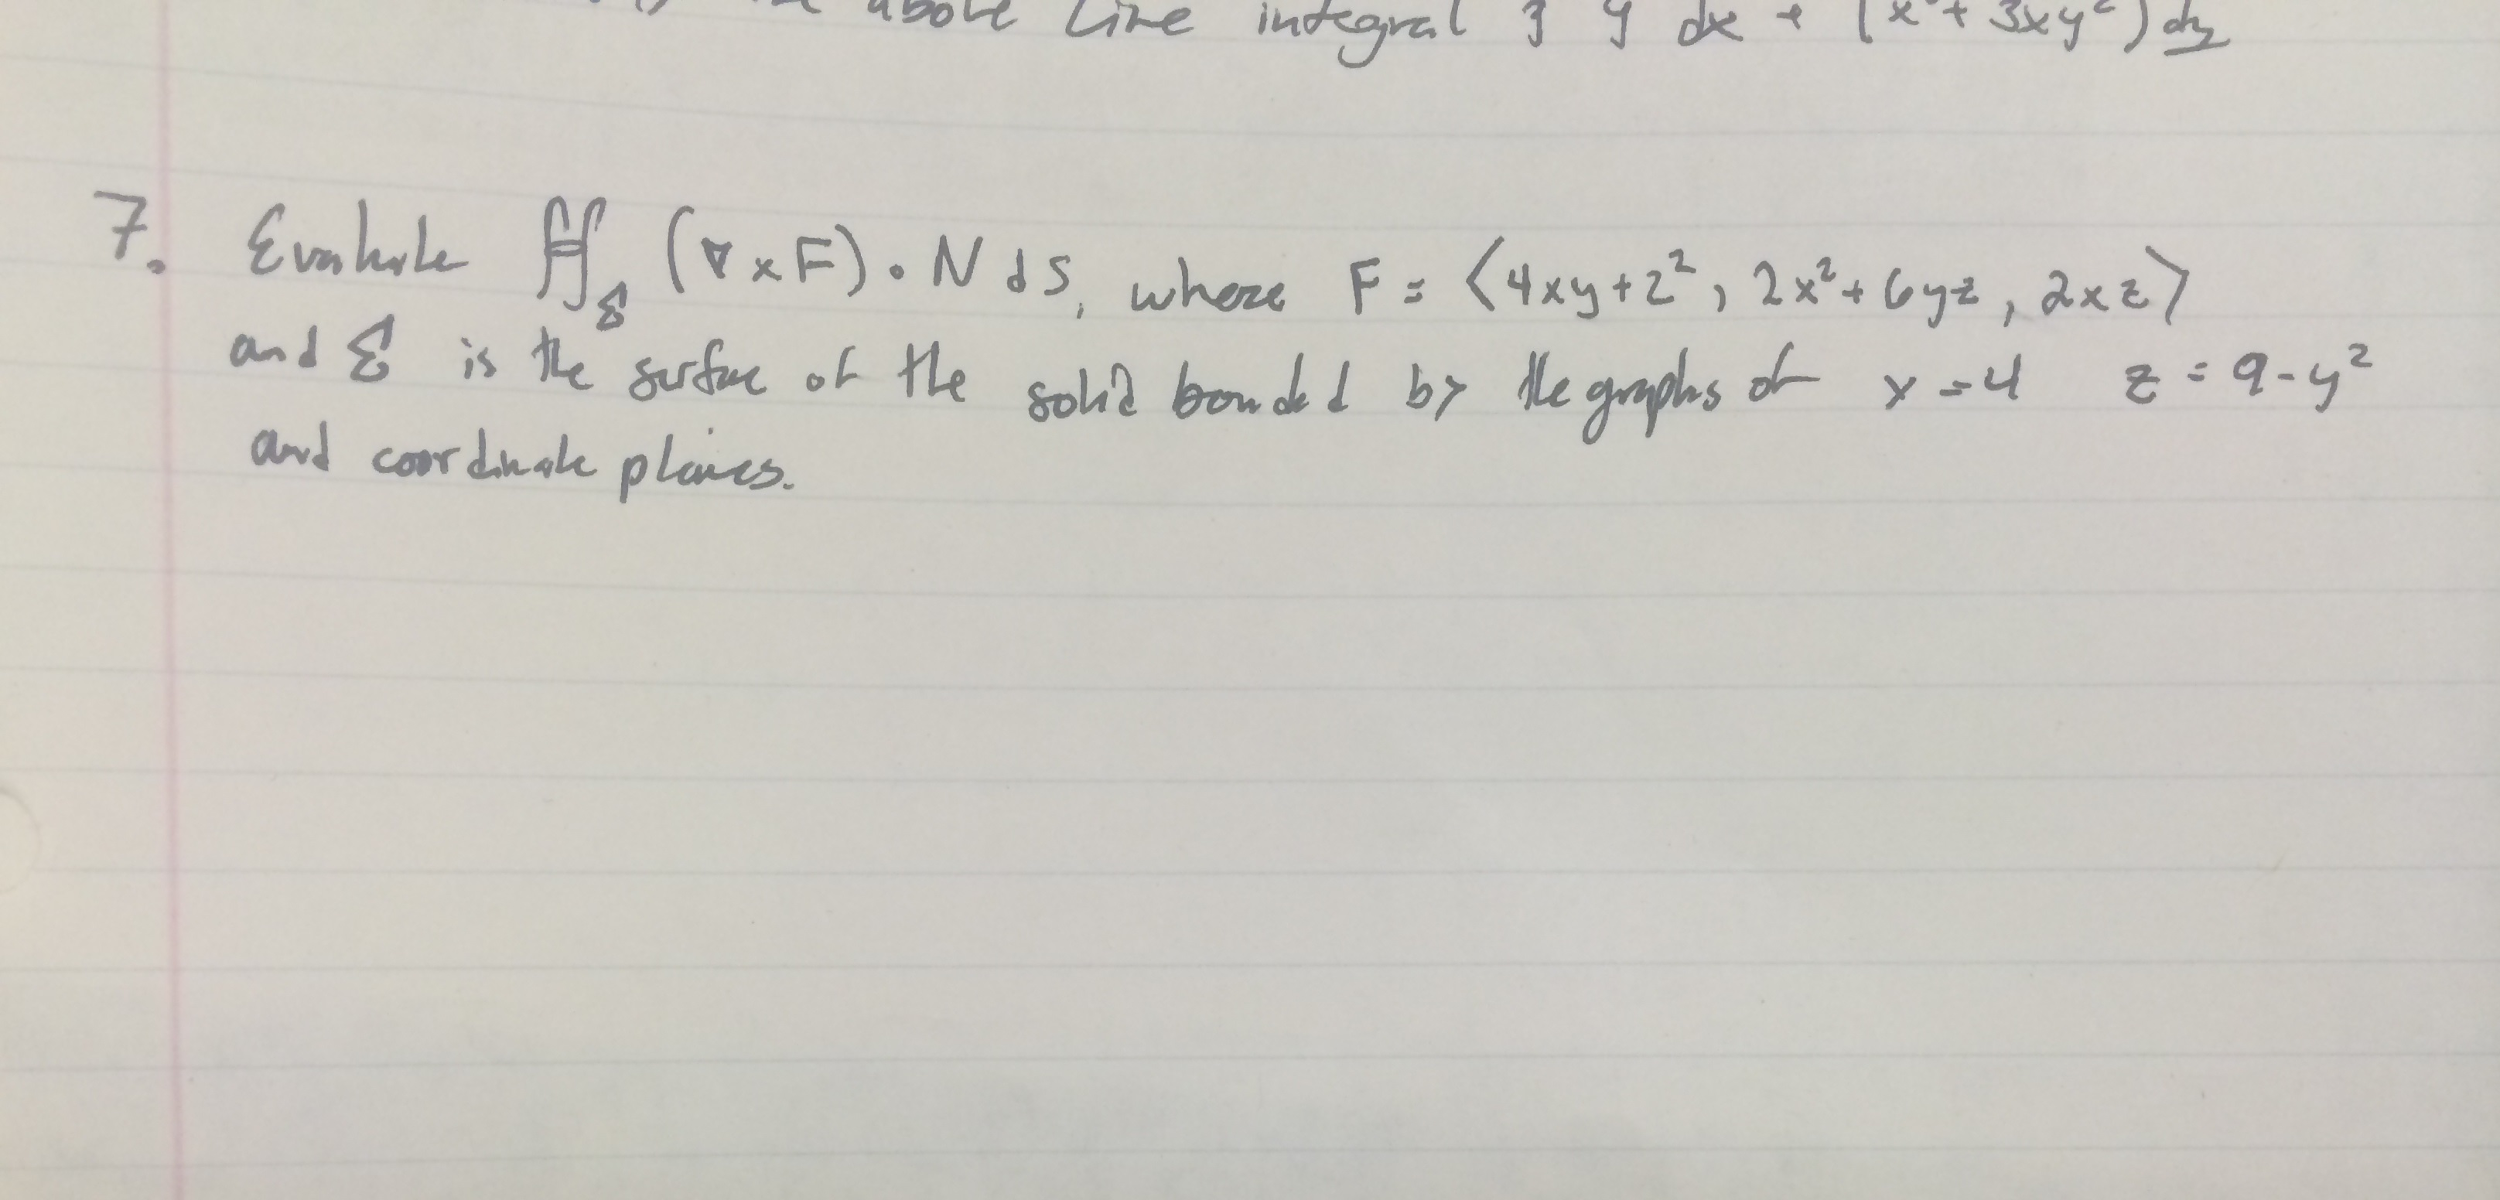 above line integral ∫ y dx + (x² + 3xy²) dy
7. Evaluate ∯_Σ (∇ × F) · N dS, where F = ⟨4xy + z², 2x² + 6yz, 2xz⟩
and Σ is the surface of the solid bounded by the graphs of x = 4 z = 9 - y²
and coordinate planes.